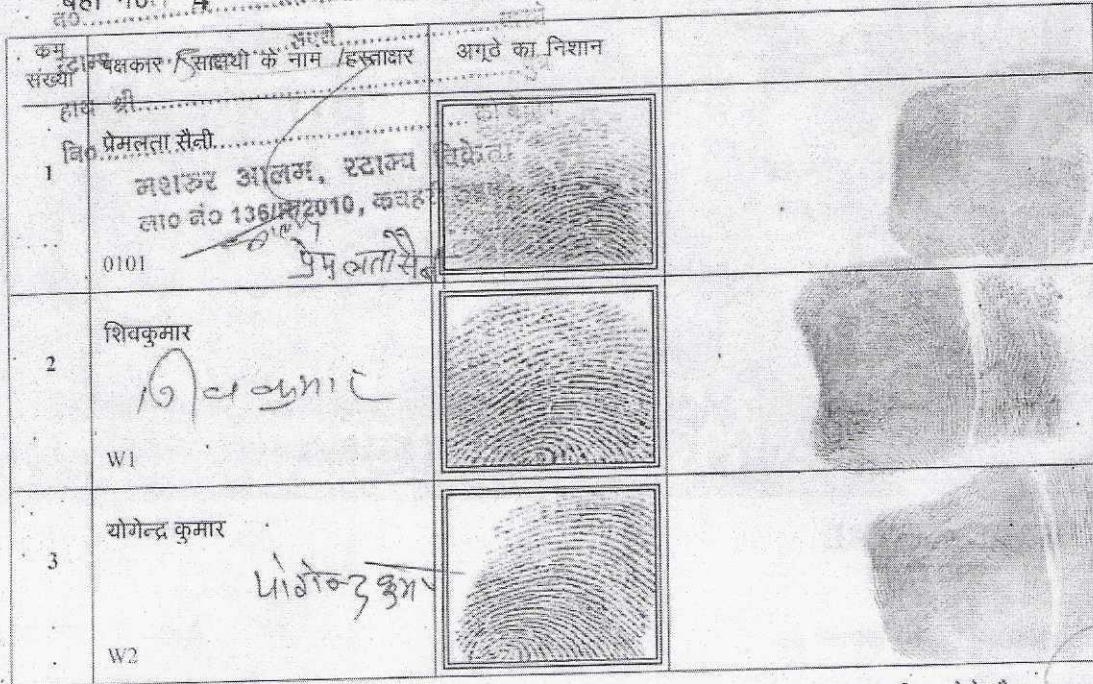 बही नं0 4
क्रम संख्या
पक्षकार / साक्षयी के नाम /हस्ताक्षर
अगूठे का निशान
स्टाम्प
हाथ श्री
1
प्रेमलता सैनी
मशरुर आलम, स्टाम्प विक्रेता
ला0 नं0 136/ 2010, कचहरी
प्रेमलता सैनी
0101
2
शिवकुमार
शिव कुमार
W1
3
योगेन्द्र कुमार
योगेन्द्र कुमार
W2